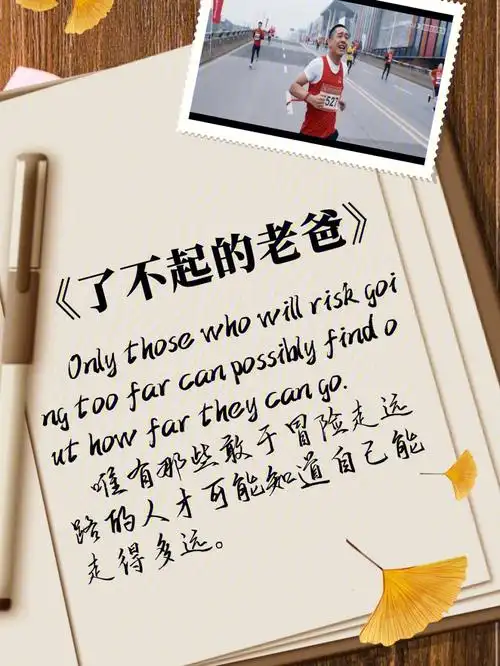 527
《了不起的老爸》
Only those who will risk goi
ng too far can possibly find o
ut how far they can go.
唯有那些敢于冒险走远
路的人才可能知道自己能
走得多远。